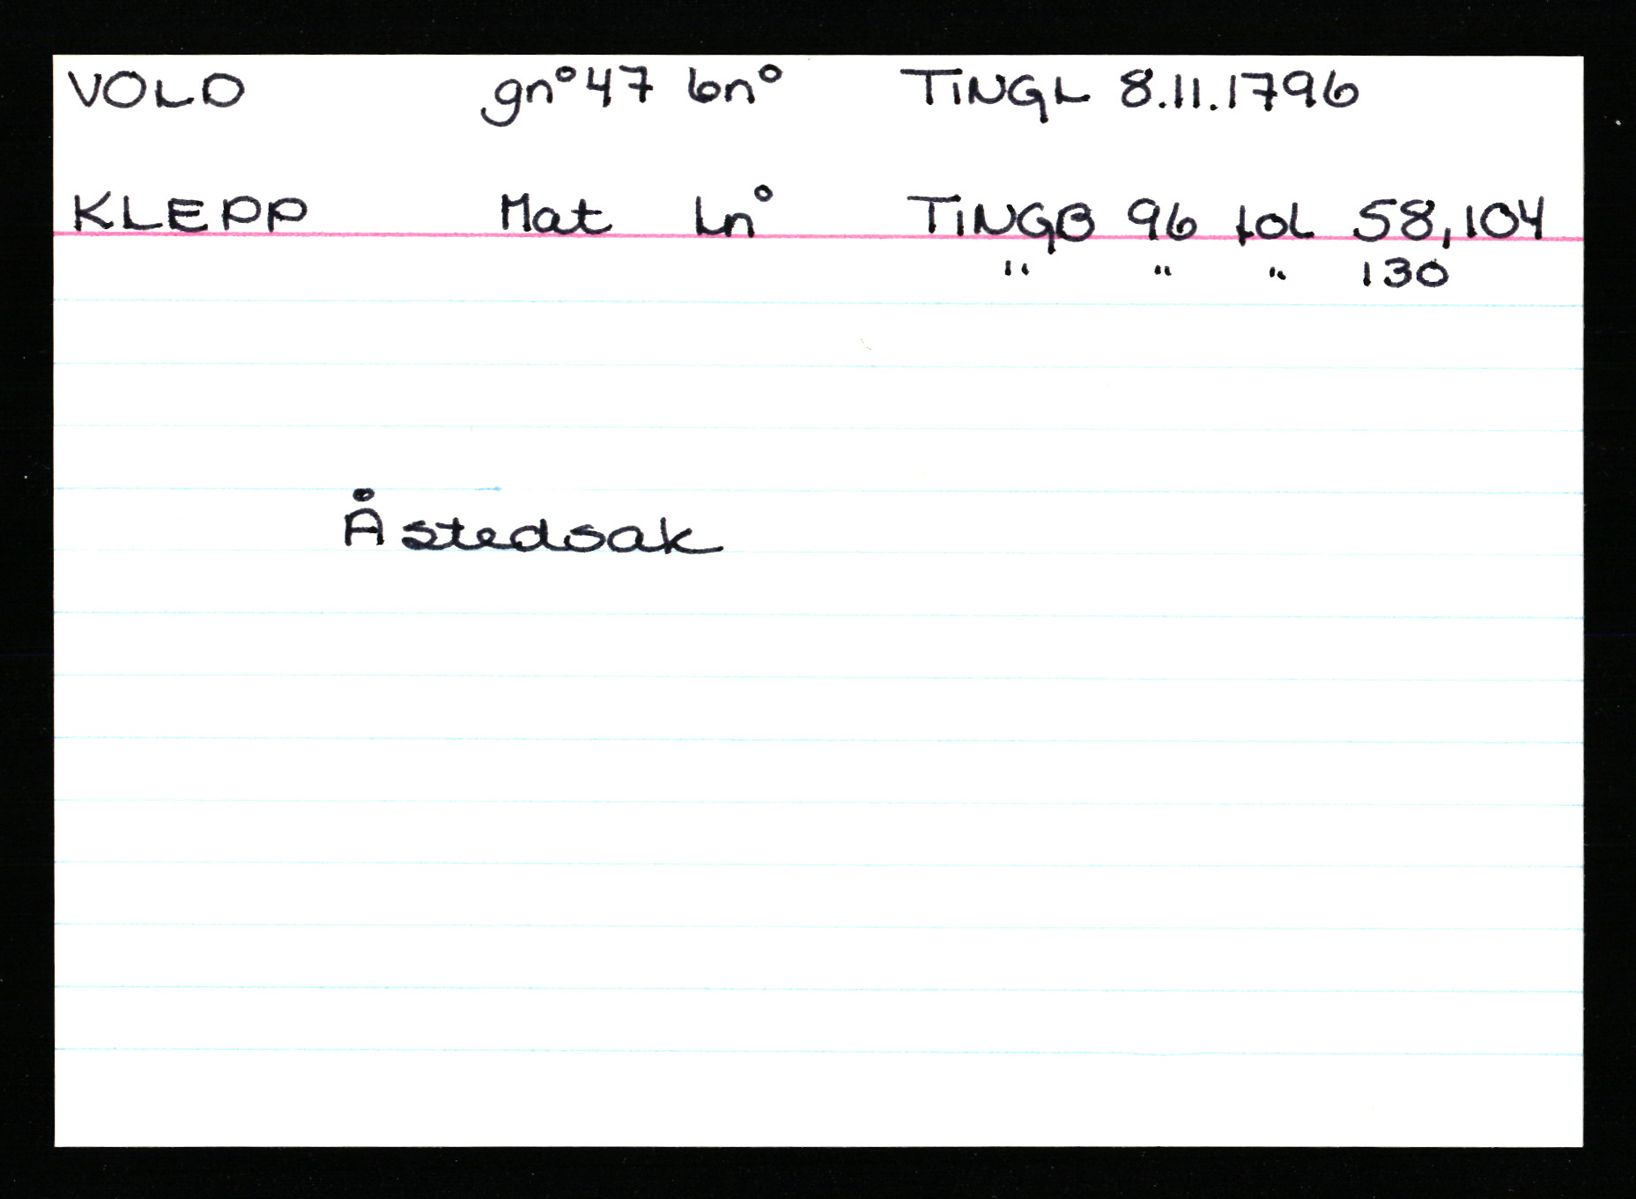 VOLD gn° 47 bn° TiNGL 8.11.1796
KLEPP Mat Ln° TiNGB 96 fol 58,104
" " " 130
Åstedsak